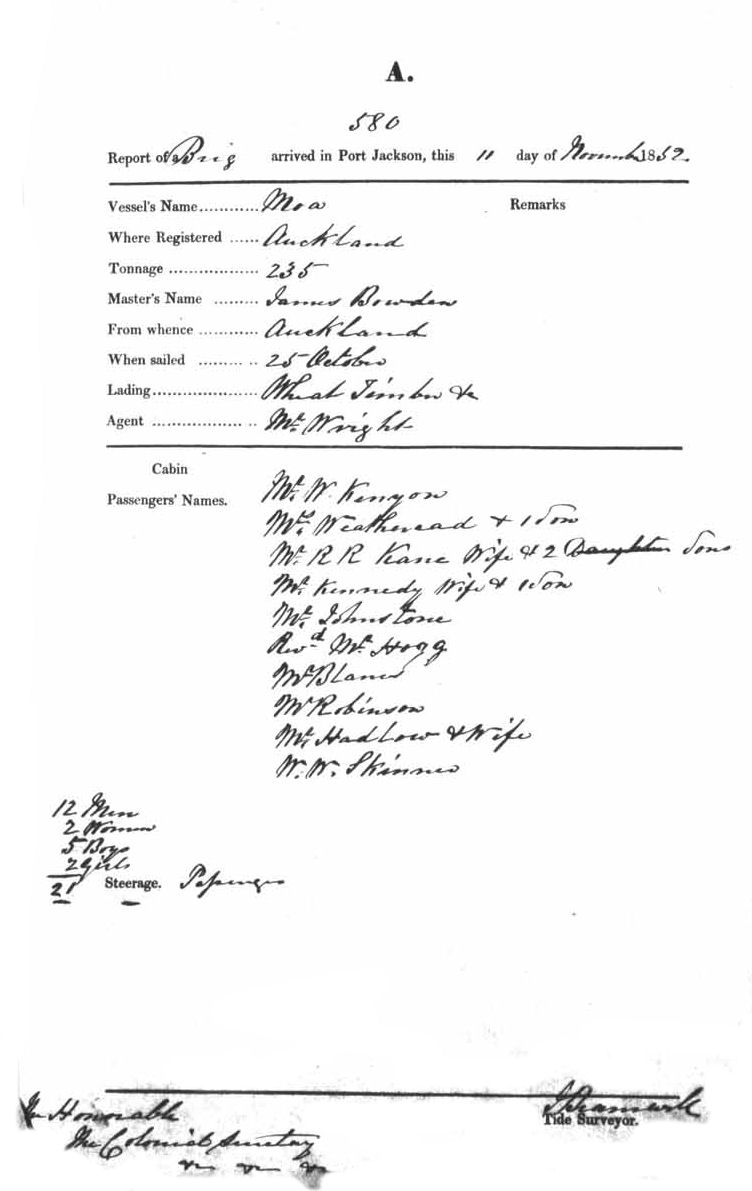 A.
580
Report of a Brig arrived in Port Jackson, this 11 day of November 1852.
Vessel's Name............ Moa Remarks
Where Registered ...... Auckland
Tonnage .................. 235
Master's Name ......... James Bowden
From whence ............ Auckland
When sailed ......... .. 25 October
Lading..................... Wheat Timber &c
Agent .................. .. Mr. Wright
Cabin
Passengers' Names. Mr. W. Kenyon
Mrs. Weatheread & 1 Son
Mr. R R Kane Wife & 2 Daughters Sons
Mr. Kennedy Wife & 1 Son
Mr. Johnstone
Revd. Mr. Hogg
Mr Blanes
Mr Robinson
Mr. Hadlow & Wife
W. W. Skinner
12 Men
2 Women
5 Boys
2 Girls
21 Steerage. Passengers
The Honorable
Tide Surveyor.
The Colonial Secretary
&c &c &c